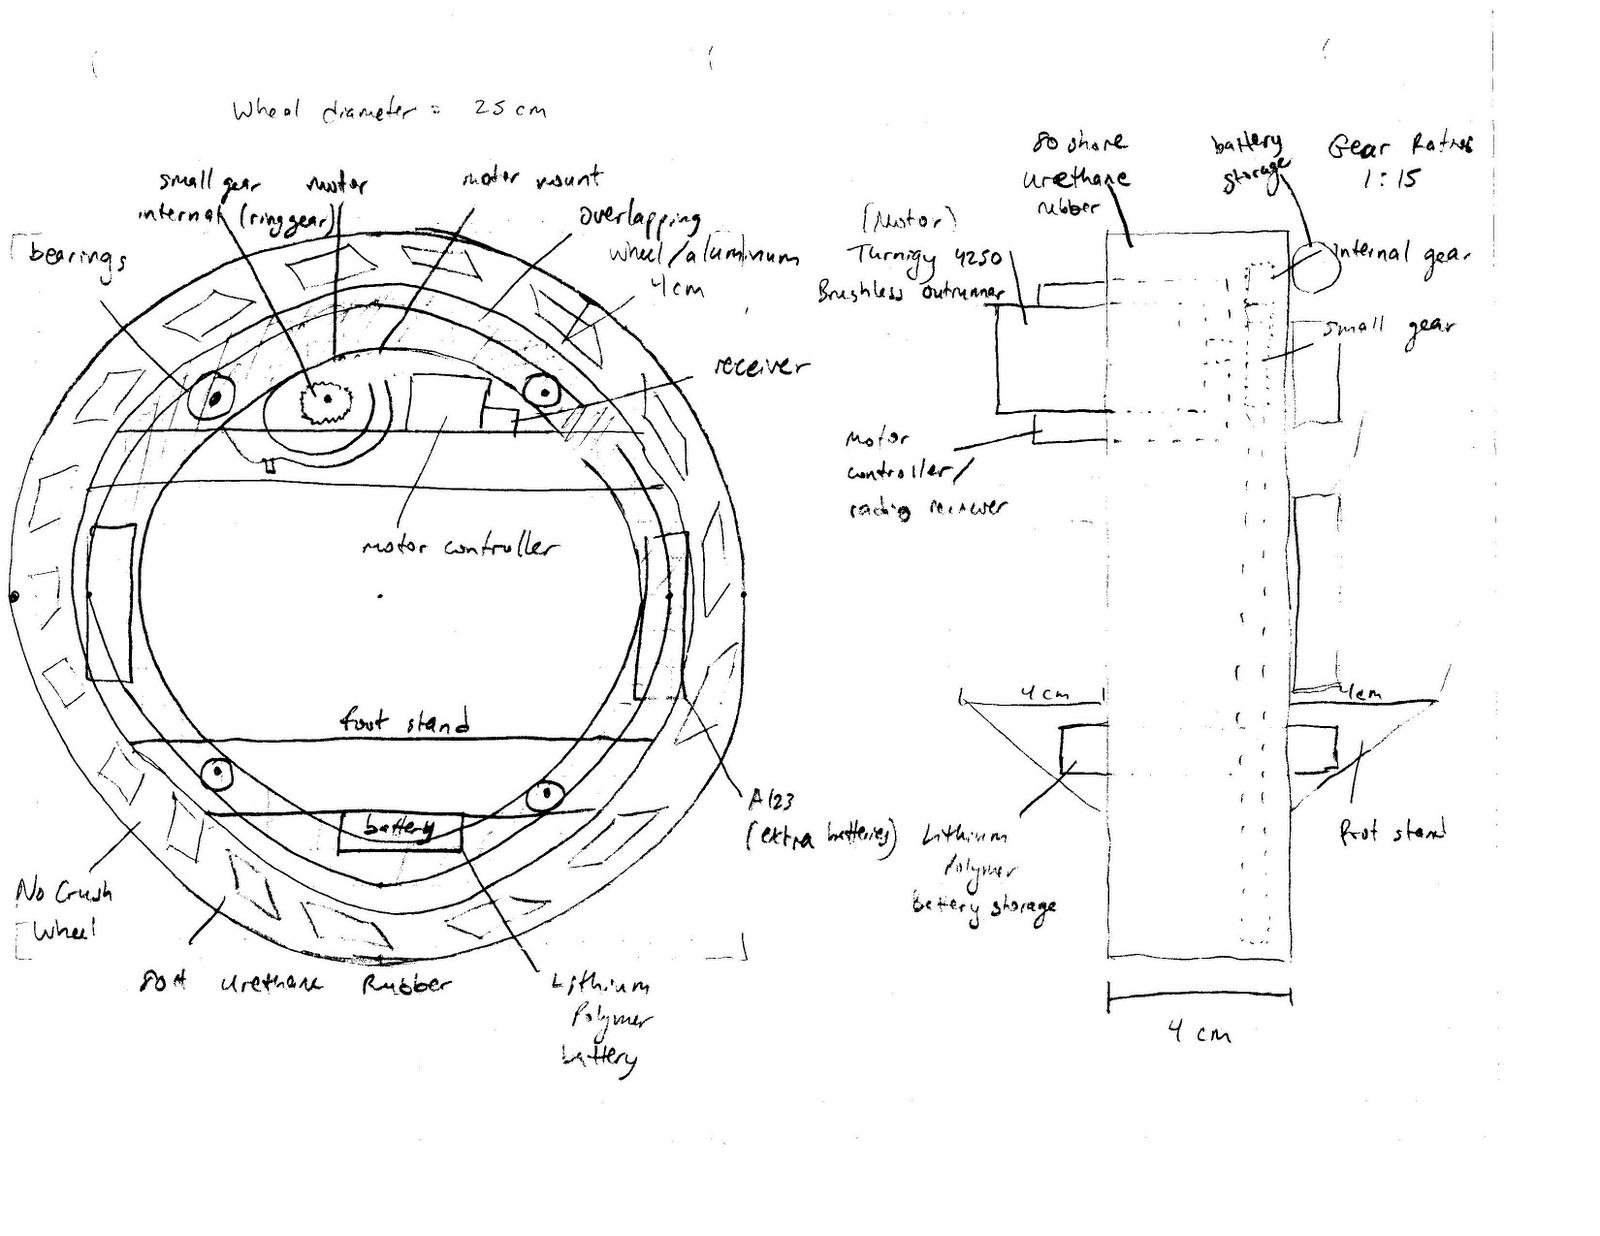 Wheel diameter = 25 cm
small gear
internal (ring gear)
motor
motor mount
overlapping
wheel/aluminum
4cm
bearings
receiver
motor controller
foot stand
battery
A123
(extra batteries)
No Crush
Wheel
80A urethane Rubber
Lithium
Polymer
battery
80 shore
urethane
rubber
battery
storage
Gear Ratios
1:15
(Motor)
Turnigy 4250
Brushless outrunner
internal gear
small gear
motor
controller/
radio receiver
4 cm
4cm
Lithium
Polymer
battery storage
foot stand
4 cm